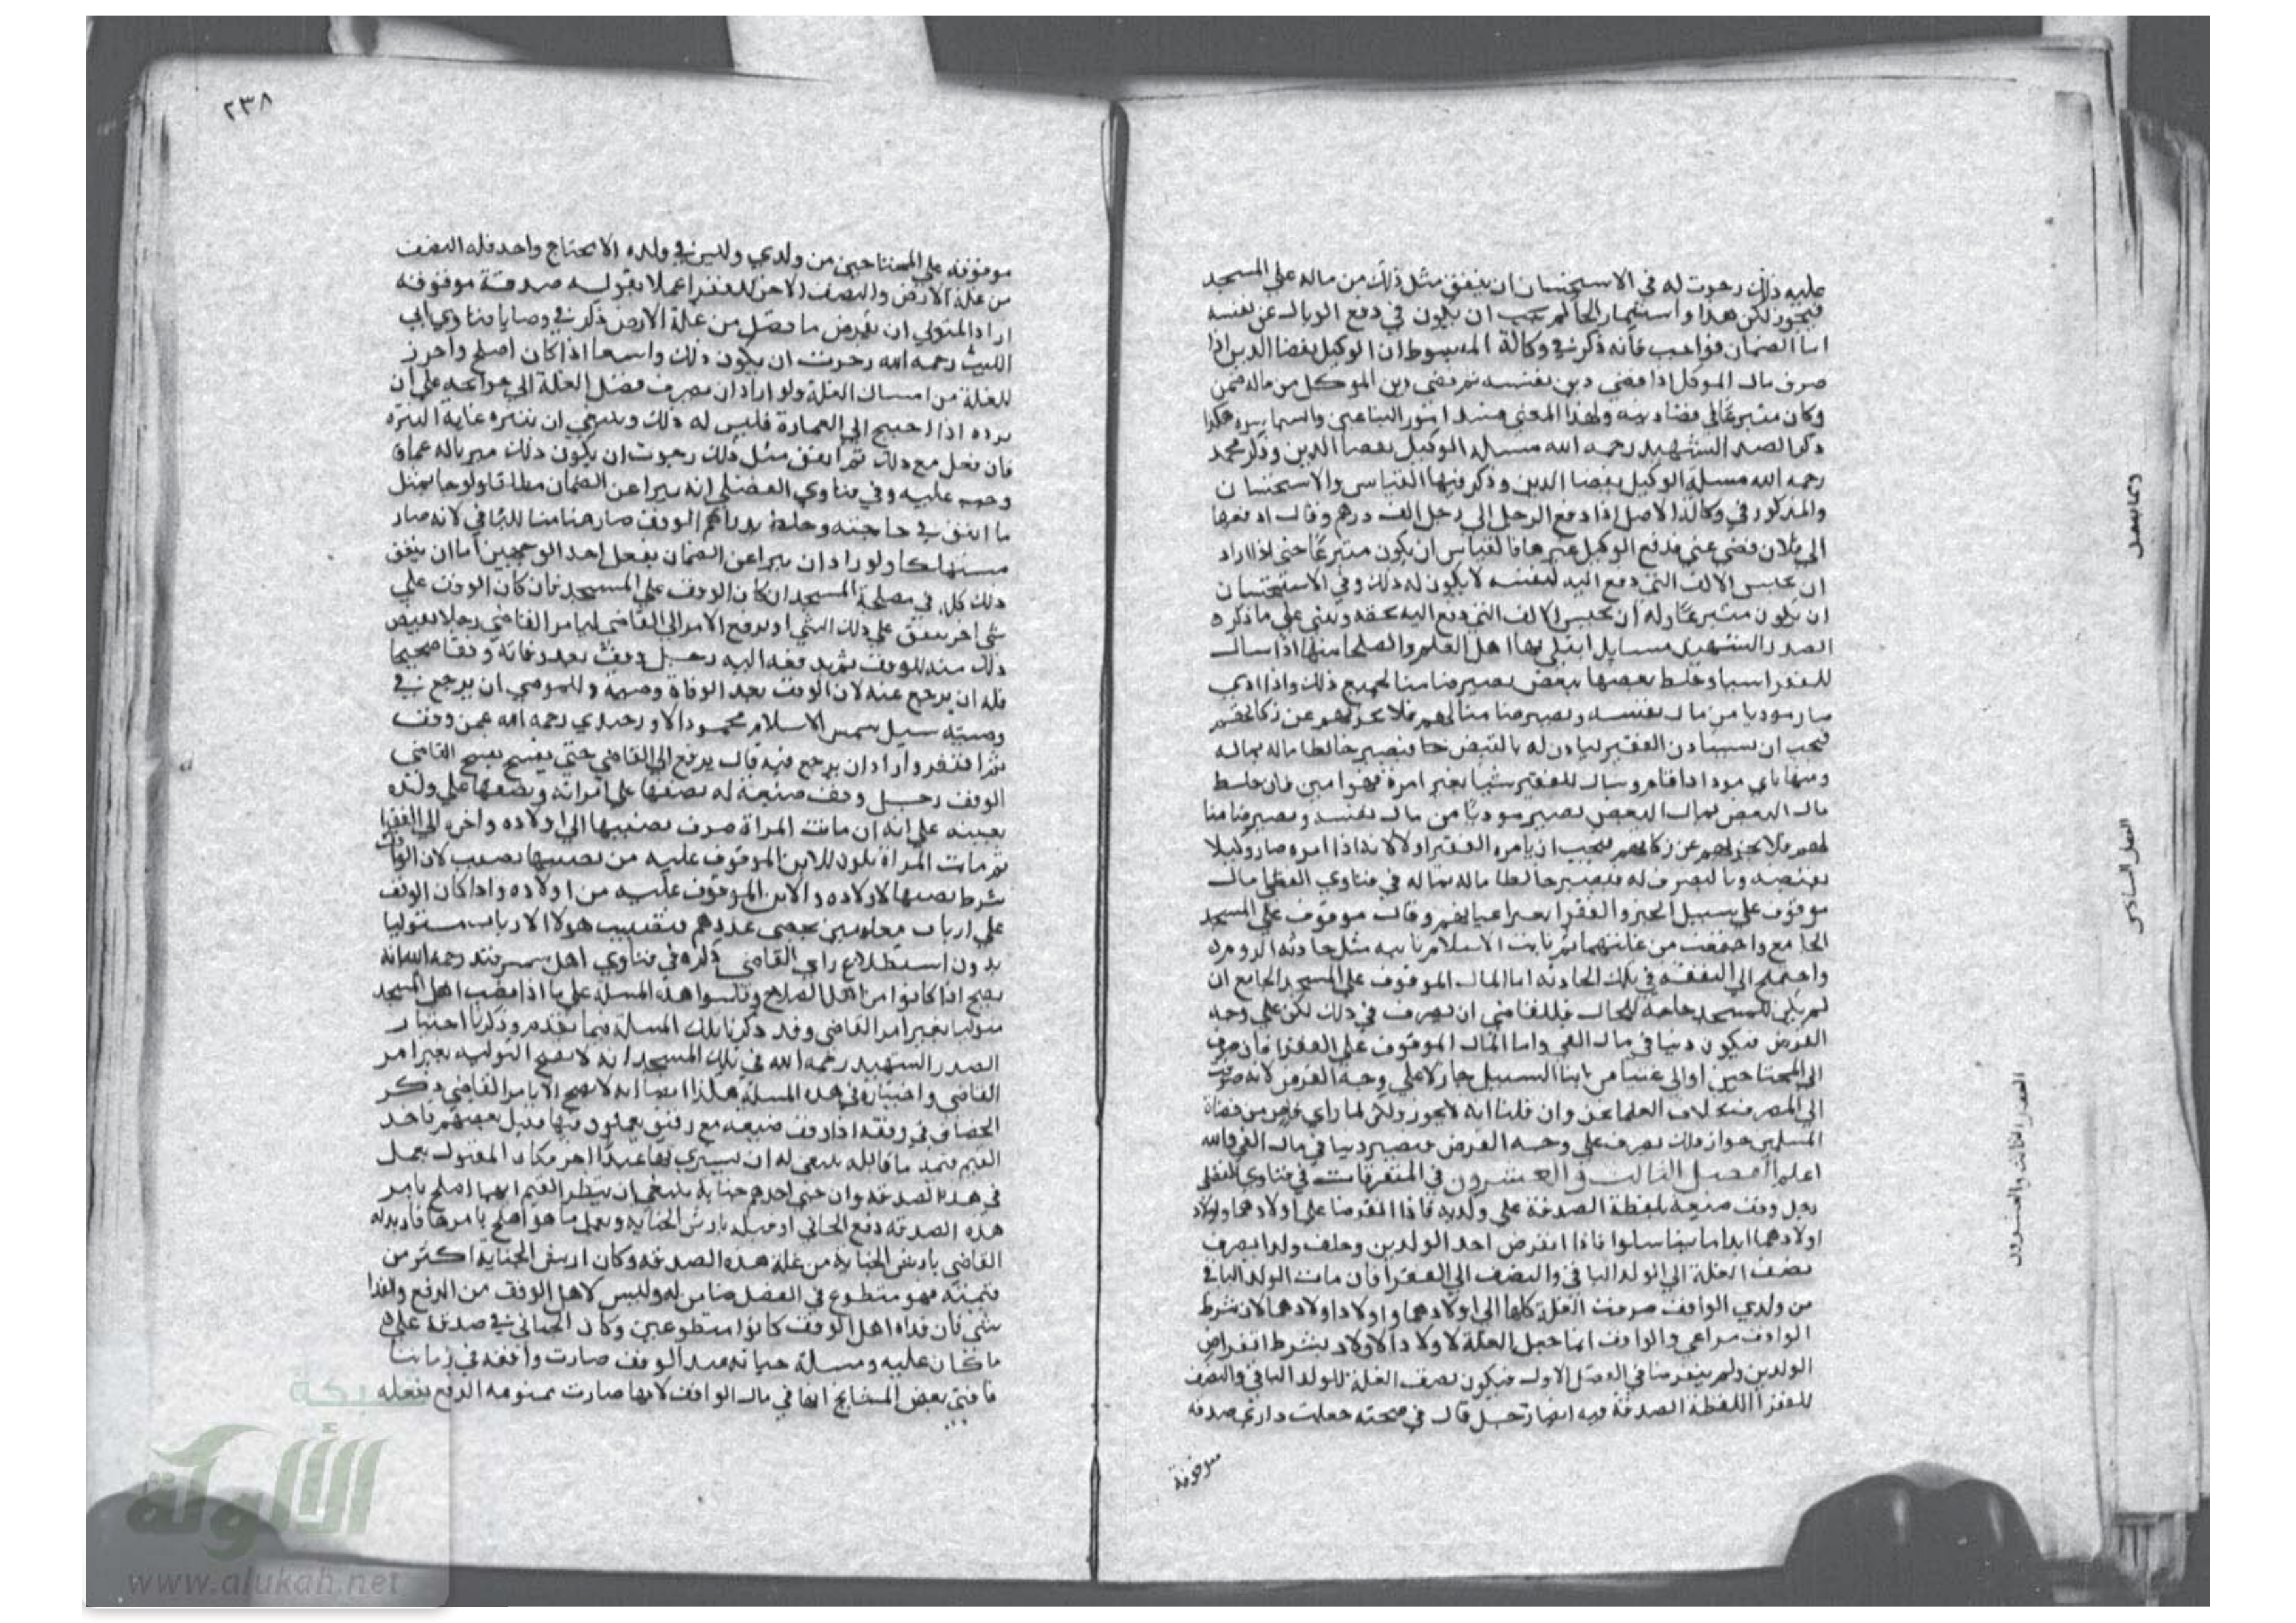 عليه ذلك رجوت له في الاستحسان ان ينفق مثل ذلك من ماله علي المسجد
فيجوز لكن هذا واستثمار الحاكم يجب ان يكون في دفع الوبال عن نفسه
اما الضمان فواجب فانه ذكر في وكالة المبسوط ان الوكيل بقضا الدين اذا
صرف مال الموكل اذا قضي دين نفسه ثم قضي دين الموكل من ماله ضمن
وكان متبرعا في قضاء دينه ولهذا المعني البياعين والسماسرة هكذا
ذكر الصدر الشهيد رحمه الله مسلة الوكيل بقضا الدين وذكر محمد
رحمه الله مسلة الوكيل بقضا الدين وذكر فيها القياس والاستحسان
والمذكور في وكالة الاصل اذا دفع الرجل الي رجل الف درهم وقال ادفعها
الي فلان قضي عني فدفع الوكيل غيرها فالقياس ان يكون متبرعا حتي اذا اراد
ان يحبس الالف التي دفع اليه لنفسه لا يكون له ذلك وفي الاستحسان
ان يكون متبرعا وله ان يحبس الالف التي دفع اليه بحقه وبني علي ما ذكره
الصدر الشهيد مسايل ابتلي بها اهل العلم والصلحا منها اذا سال
للفقرا شيا وخلط بعضها ببعض يصير ضامنا لجميع ذلك واذا ادي
صار موديا من مال نفسه ويصير ضامنا لهم فلا يجزيهم عن زكاتهم
فيجب ان يستاذن الفقير لياذن له بالقبض فيصير خالطا ماله بماله
ومنها باي مودا اذا قام وسال للفقير شيا بغير امره فهو امين فان خلط
مال البعض بمال البعض يصير موديا من مال نفسه ويصير ضامنا
لهم فلا يجزيهم عن زكاتهم فيجب ان يامره الفقير اولا لانه اذا امره صار وكيلا
بقبضه وبالتصرف له فيصير خالطا ماله بماله في فتاوي الفضلي مال
موقوف علي سبيل الخير والفقرا بغير اعيانهم وقال موقوف علي المسجد
الجامع واجتمعت من غلتهما ثم نابت الاسلام نايبه مثل حادثة الروم
واحتيج الي النفقة في تلك الحادثة اما المال الموقوف علي المسجد الجامع ان
لم يكن للمسجد حاجة للحال فللقاضي ان يصرف في ذلك لكن علي وجه
القرض فيكون دينا في مال الفي واما المال الموقوف علي الفقرا فان صرف
الي المحتاجين او الي غنيا من ابنا السبيل جاز لا علي وجه القرض لانه صرف
الي المصرف العلما وان قلنا انه لا يجوز ولكن لما راي قاض من قضاة
المسلمين جواز ذلك يصرف علي وجه القرض فيصير دينا في مال الفي والله
اعلم الفصل الثالث والعشرون في المتفرقات في فتاوي الفضلي
رجل وقف ضيعة بلفظة الصدقة علي ولديه فاذا انقرضا علي اولادهما واولاد
اولادهما ابدا ما تناسلوا فاذا انقرض احد الولدين وخلف ولدا يصرف
نصف الغلة الي الولد الباقي والنصف الي الفقرا فان مات الولد الباقي
من ولدي الواقف صرفت الغلة كلها الي اولادهما واولاد اولادهما لان شرط
الواقف مراعي والواقف انما جعل الغلة لاولاد الاولاد بشرط انقراض
الولدين ولم ينقرضا في الفصل الاول فيكون نصف الغلة للولد الباقي والنصف
للفقرا اللفظة الصدقة فيه ايضا رجل قال في صحته جعلت داري صدقة
موقوفة
الفصل الثالث والعشرون
الفصل السادس
٢٣٨
موقوفة علي المحتاجين من ولدي وليس في ولده الا محتاج واحد فله النصف
من غلة الارض والنصف الاخر للفقرا عملا بقوله صدقة موقوفة
اراد المتولي ان يقرض ما فضل من غلة الارض ذكر في وصايا فتاوي ابي
الليث رحمه الله رجوت ان يكون ذلك واسعا اذا كان اصلح واحرز
للغلة من امساك الغلة ولو اراد ان يصرف فضل الغلة الي حوايجه علي ان
يرده اذا احتيج الي العمارة فليس له ذلك وينبغي ان يتنزه غاية التنزه
فان فعل مع ذلك ثم انفق مثل ذلك رجوت ان يكون ذلك مبريا له عما
وجب عليه وفي فتاوي الفضلي انه يبرا عن الضمان مطلقا ولو جا بمثل
ما انفق في حاجته وخلط بدراهم الوقف صار ضامنا للباقي لانه صار
مستهلكا ولو اراد ان يبرا عن الضمان يفعل احد الوجهين اما ان ينفق
ذلك كله في مصلحة المسجد ان كان الوقف علي المسجد فان كان الوقف علي
شي اخر ينفق علي ذلك الشي او يرفع الامر الي القاضي ليامر القاضي رجلا بقبض
ذلك منه للوقف ثم يدفعه اليه رجل وقف بعد وفاته وقفا صحيحا
فله ان يرجع عنه لان الوقف بعد الوفاة وصية وللموصي ان يرجع في
وصيته سيل شمس الاسلام محمود الاوزجندي رحمه الله عمن وقف
ثم افتقر واراد ان يرجع فيه قال يرفع الي القاضي حتي يفسخ القاضي
الوقف رجل وقف ضيعة له نصفها علي امراته ونصفها علي ولده
بعينه علي انه ان ماتت المراة صرف نصيبها الي اولاده واخره الي الفقرا
ثم ماتت المراة يكون للابن الموقوف عليه من نصيبها نصيب لان الواقف
شرط نصيبها لاولاده والابن الموقوف عليه من اولاده واذا كان الوقف
علي ارباب معلومين يحصي عددهم فنصب هولا الارباب متوليا
بدون استطلاع راي القاضي ذكره في فتاوي اهل سمرقند رحمه الله انه
يصح اذا كانوا من اهل الصلاح وقاسوا هذه المسلة علي ما اذا نصب اهل المسجد
متوليا بغير امر القاضي وقد ذكرنا تلك المسلة فيما تقدم وذكرنا اختيار
الصدر الشهيد رحمه الله في تلك المسجد انه لا تصح التولية بغير امر
القاضي واختياره في هذه المسلة هكذا ايضا انه لا يصح الا بامر القاضي ذكر
الخصاف في وقفه اذا وقف ضيعة مع رقيق يعملون فيها فقتل بعضهم فاخذ
القيم قيمة ما قابله ينبغي له ان يشتري بها عبدا اخر مكان المقتول يعمل
في هذه الصدقة وان جني احدهم جناية ينبغي ان ينظر القيم ايهما اصلح بامر
هذه الصدقة دفع الجاني او فداه بارش الجناية ويعمل ما هو اصلح بامرها
القاضي بارش الجناية من غلة هذه الصدقة وكان ارش الجناية اكثر من
قيمته فهو متطوع في الفضل ضامن له وليس لاهل الوقف من الدفع والفدا
شي فان فداه اهل الوقف كانوا متطوعين وكان الجاني في صدقة علي
ما كان عليه ومسلة جناية عبد الوقف صارت واقعة في زماننا
فافتي بعض المشايخ انها في مال الواقف لانها صارت ممنوعة الدفع بفعله
شبكة
الألوكة
www.alukah.net